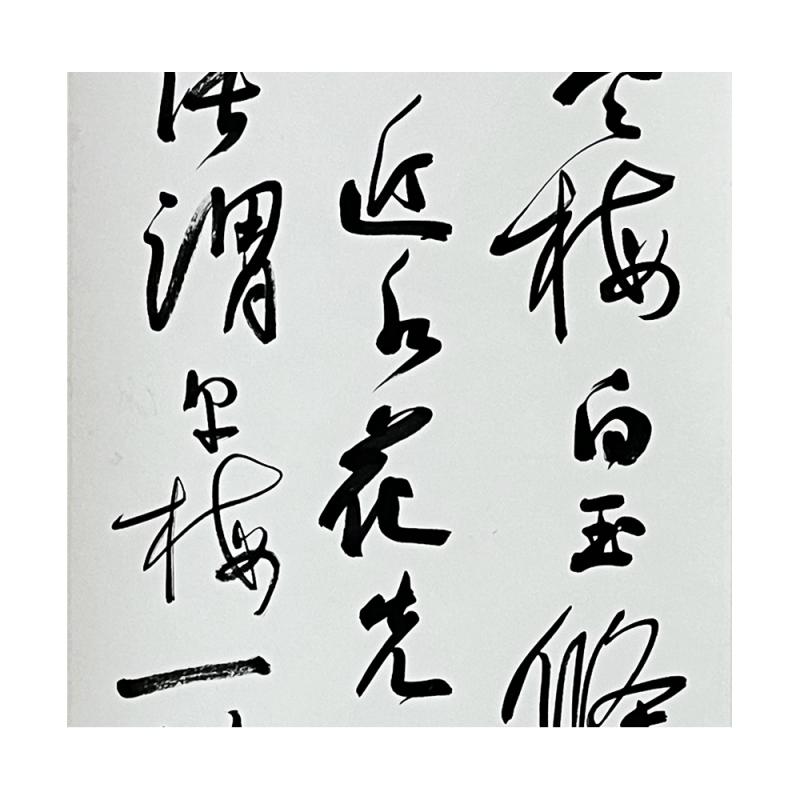 梅白玉條
近水花先
謂早梅一